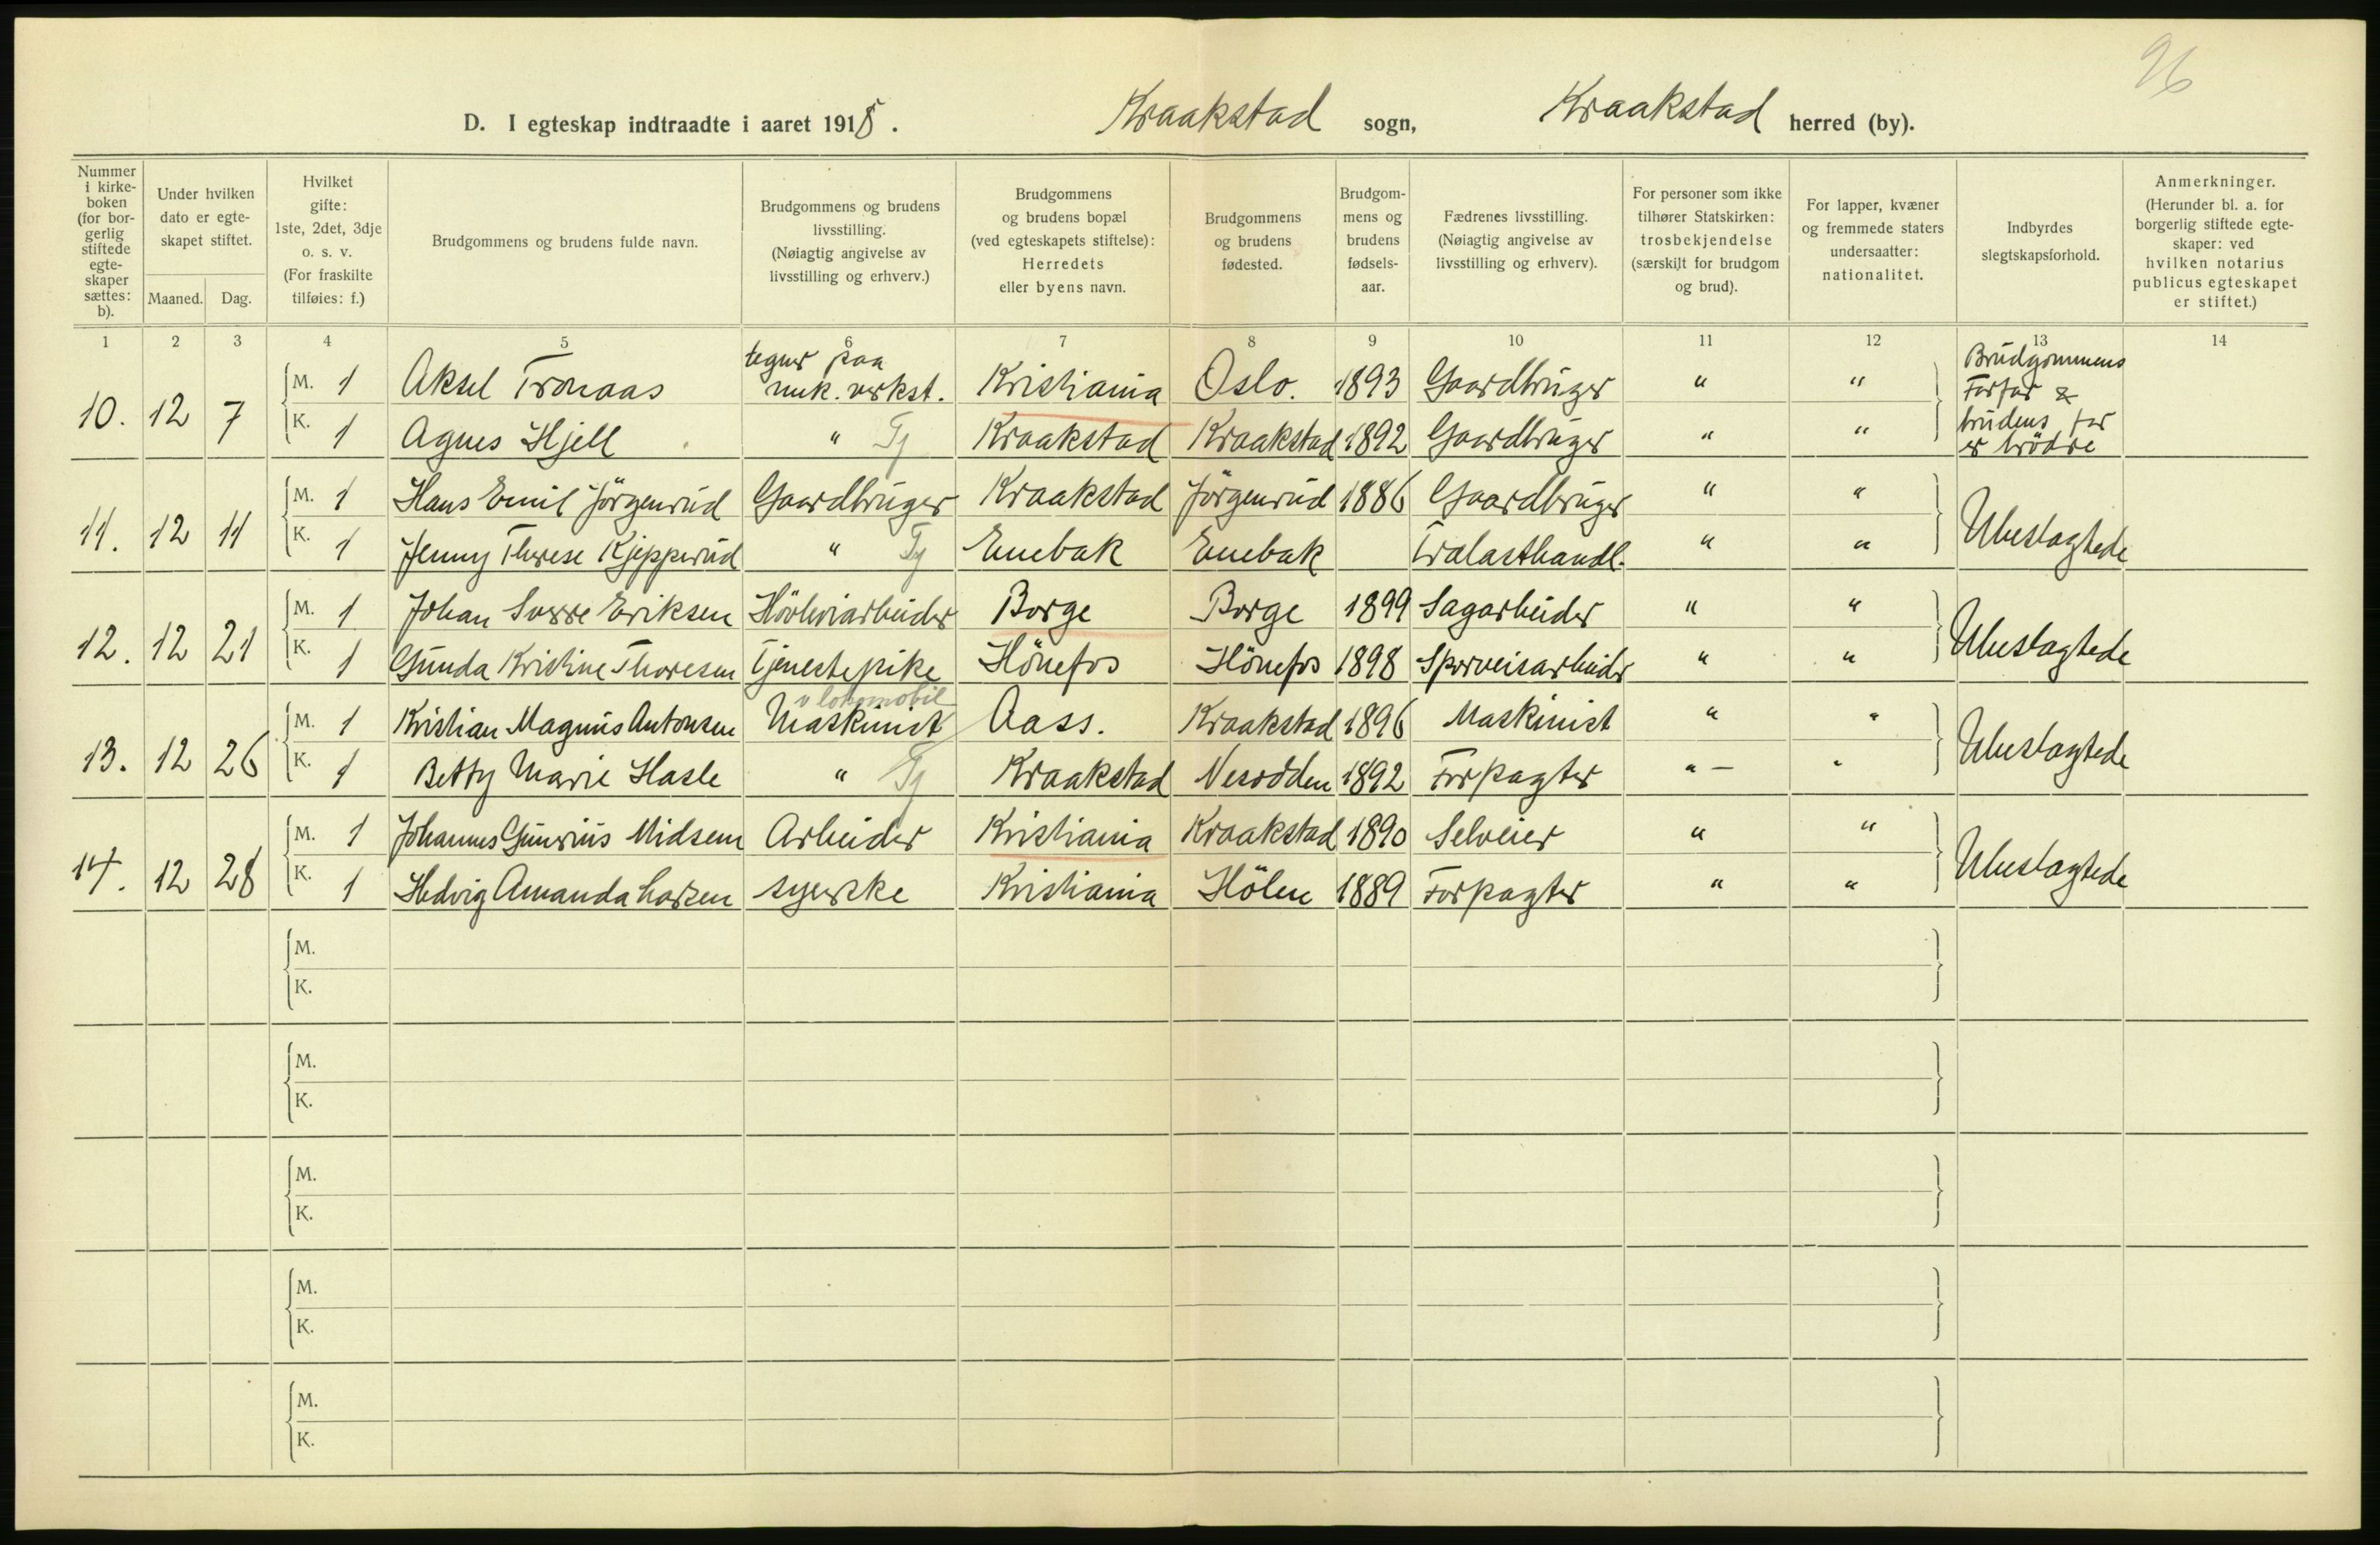 96
D. I egteskap indtraadte i aaret 1918. Kraakstad sogn, Kraakstad herred (by).
Nummer i kirke-boken (for bor-gerlig stiftede egte-skaper sættes: b).
Under hvilken dato er egte-skapet stiftet.
Maaned. Dag.
Hvilket gifte: 1ste, 2det, 3dje o. s. v. (For fraskilte tilføies: f.)
Brudgommens og brudens fulde navn.
Brudgommens og brudens livsstilling. (Nøiagtig angivelse av livsstilling og erhverv.)
Brudgommens og brudens bopæl (ved egteskapets stiftelse): Herredets eller byens navn.
Brudgommens og brudens fødested.
Brudgom-mens og brudens fødsels-aar.
Fædrenes livsstilling. (Nøiagtig angivelse av livsstilling og erhverv).
For personer som ikke tilhører Statskirken: trosbekjendelse (særskilt for brudgom og brud).
For lapper, kvæner og fremmede staters undersaatter: nationalitet.
Indbyrdes slegtskapsforhold.
Anmerkninger. (Herunder bl. a. for borgerlig stiftede egte-skaper: ved hvilken notarius publicus egteskapet er stiftet.)
1 2 3 4 5 6 7 8 9 10 11 12 13 14
10. 12 7
M. 1 Aksel Tronaas tegner paa mek. verkst. Kristiania Oslo. 1893 Gaardbruger " "
K. 1 Agnes Hjell " Tj Kraakstad Kraakstad 1892 Gaardbruger " "
Brudgommens Farfar & brudens far er brödre
11. 12 11
M. 1 Hans Emil Jörgenrud Gaardbruger Kraakstad Jörgenrud 1886 Gaardbruger " "
K. 1 Jenny Therese Kjepperud " Tj Enebak Enebak Trælasthandl. " "
Ubeslægtede
12. 12 21
M. 1 Johan Sverre Eriksen Hövleriarbeider Borge Borge 1899 Sagarbeider " "
K. 1 Gunda Kristine Thoresen Tjenestepike Hönefos Hönefos 1898 Sporveisarbeider " "
Ubeslægtede
13. 12 26
M. 1 Kristian Magnus Antonsen Maskinist v lokomobil Aass. Kraakstad 1896 Maskinist " "
K. 1 Betty Marie Hasle " Tj Kraakstad Nesodden 1892 Forpagter " — "
Ubeslægtede
14. 12 28
M. 1 Johannes Gunerius Midsem Arbeider Kristiania Kraakstad 1890 Selveier " "
K. 1 Hedvig Amanda Larsen syerske Kristiania Hölen 1889 Forpagter " "
Ubeslægtede
M.
K.
M.
K.
M.
K.
M.
K.
M.
K.